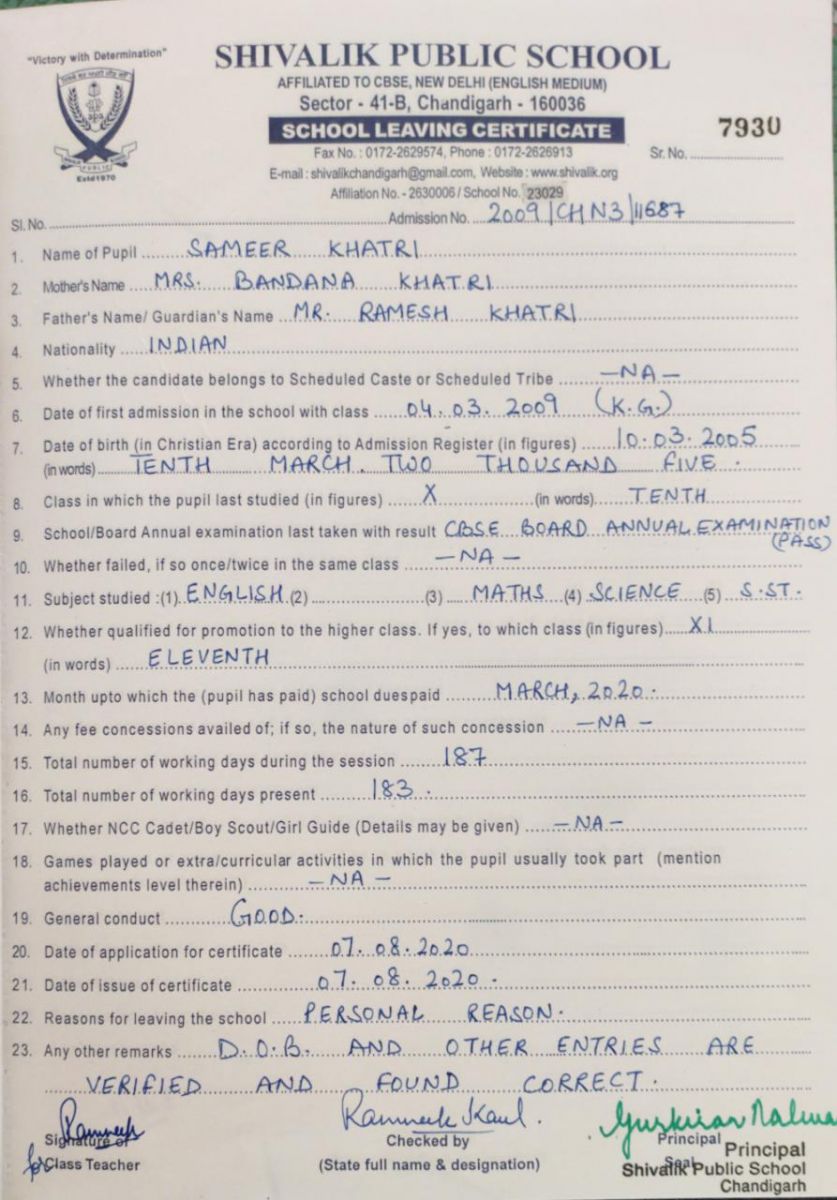 "Victory with Determination"
SHIVALIK PUBLIC SCHOOL
AFFILIATED TO CBSE, NEW DELHI (ENGLISH MEDIUM)
Sector - 41-B, Chandigarh - 160036
SCHOOL LEAVING CERTIFICATE
7930
Fax No. : 0172-2629574, Phone : 0172-2626913
Sr. No.
E-mail : shivalikchandigarh@gmail.com, Website : www.shivalik.org
Estd 1970
Affiliation No. - 2630006 / School No. 23029
Sl. No. Admission No. 2009/CHN3/11687
1. Name of Pupil SAMEER KHATRI
2. Mother's Name MRS. BANDANA KHATRI
3. Father's Name/ Guardian's Name MR. RAMESH KHATRI
4. Nationality INDIAN
5. Whether the candidate belongs to Scheduled Caste or Scheduled Tribe -NA-
6. Date of first admission in the school with class 04.03.2009 (K.G.)
7. Date of birth (in Christian Era) according to Admission Register (in figures) 10.03.2005
(in words) TENTH MARCH TWO THOUSAND FIVE.
8. Class in which the pupil last studied (in figures) X (in words) TENTH
9. School/Board Annual examination last taken with result CBSE BOARD ANNUAL EXAMINATION
(PASS)
10. Whether failed, if so once/twice in the same class -NA-
11. Subject studied :(1) ENGLISH (2) (3) MATHS (4) SCIENCE (5) S.ST.
12. Whether qualified for promotion to the higher class. If yes, to which class (in figures) XI
(in words) ELEVENTH
13. Month upto which the (pupil has paid) school duespaid MARCH, 2020.
14. Any fee concessions availed of; if so, the nature of such concession -NA-
15. Total number of working days during the session 187
16. Total number of working days present 183.
17. Whether NCC Cadet/Boy Scout/Girl Guide (Details may be given) -NA-
18. Games played or extra/curricular activities in which the pupil usually took part (mention
achievements level therein) -NA-
19. General conduct GOOD.
20. Date of application for certificate 07.08.2020
21. Date of issue of certificate 07.08.2020.
22. Reasons for leaving the school PERSONAL REASON.
23. Any other remarks D.O.B. AND OTHER ENTRIES ARE
VERIFIED AND FOUND CORRECT.
Ramneek Ramneek Kaul. Gurkiran Nalwa
Signature of Checked by Principal Principal
for Class Teacher (State full name & designation) Seal Shivalik Public School
Chandigarh